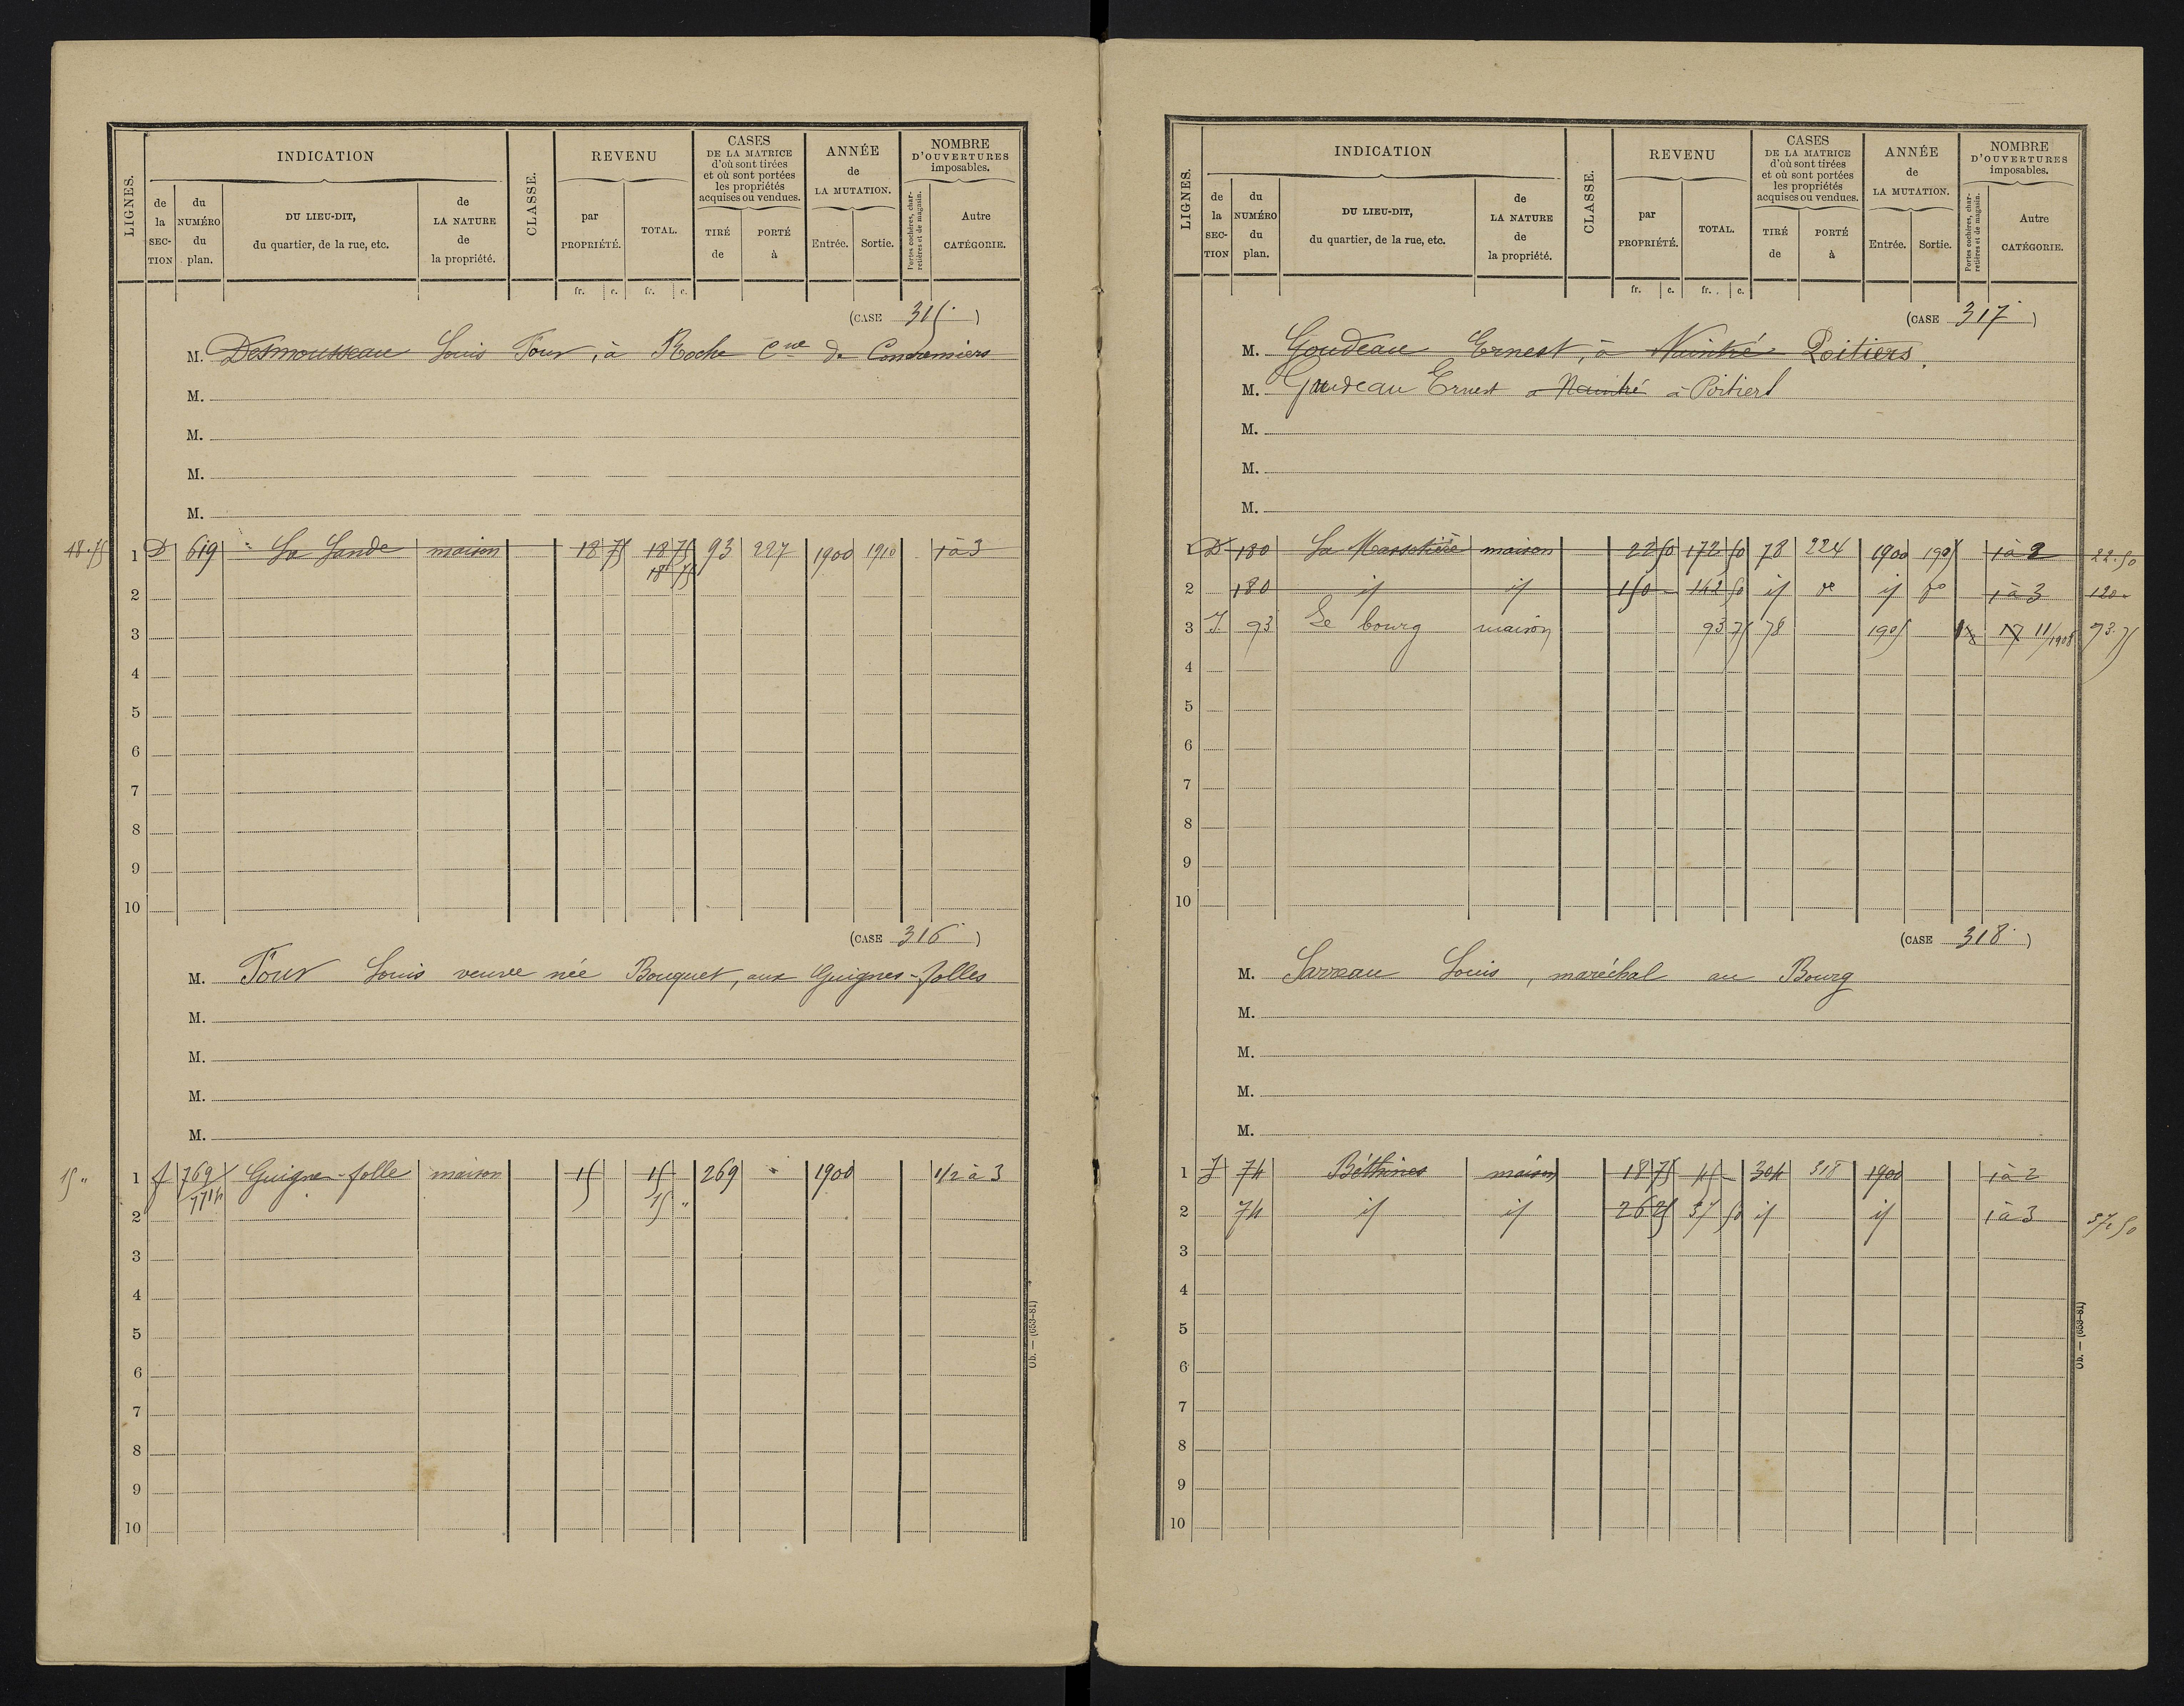 LIGNES.
INDICATION
de la SEC-TION
du NUMÉRO du plan.
DU LIEU-DIT, du quartier, de la rue, etc.
de LA NATURE de la propriété.
CLASSE.
REVENU
par PROPRIÉTÉ.
TOTAL.
CASES DE LA MATRICE d'où sont tirées et où sont portées les propriétés acquises ou vendues.
TIRÉ de
PORTÉ à
ANNÉE de LA MUTATION.
Entrée.
Sortie.
NOMBRE D'OUVERTURES imposables.
Portes cochères, charretières et de magasin.
Autre CATÉGORIE.
fr. c. fr. c.
(CASE 315)
M. Desmousseau Louis Four, à Roche Cne de Concremiers
M.
M.
M.
M.
18.75 1 D 619 La Lande maison 18 75 18 75 93 227 1900 1910 1 à 3
18 75
2
3
4
5
6
7
8
9
10
(CASE 316)
M. Four Louis veuve née Bouquet, aux Guignes-folles
M.
M.
M.
M.
15 " 1 J 769 Guigne-folle maison 15 15 269 1900 1/2 à 3
2 15 "
3
4
5
6
7
8
9
10
Ob. — (653-81)
LIGNES.
INDICATION
de la SEC-TION
du NUMÉRO du plan.
DU LIEU-DIT, du quartier, de la rue, etc.
de LA NATURE de la propriété.
CLASSE.
REVENU
par PROPRIÉTÉ.
TOTAL.
CASES DE LA MATRICE d'où sont tirées et où sont portées les propriétés acquises ou vendues.
TIRÉ de
PORTÉ à
ANNÉE de LA MUTATION.
Entrée.
Sortie.
NOMBRE D'OUVERTURES imposables.
Portes cochères, charretières et de magasin.
Autre CATÉGORIE.
fr. c. fr. c.
(CASE 317)
M. Goudeau Ernest, à Naintré Poitiers.
M. Goudeau Ernest à Naintré à Poitiers
M.
M.
M.
1 D 180 La Massotière maison 22 50 172 50 78 224 1900 1905 1 à 2 22.50
2 180 if if 150 - 142 50 if do if do 1 à 3 120 -
3 J. 93 Le bourg maison 93 75 78 1905 17 11/1908 93.75
4
5
6
7
8
9
10
(CASE 318)
M. Sarreau Louis, maréchal au Bourg
M.
M.
M.
M.
1 J 74 Béthines maison 18 75 45 - 304 318 1900 1 à 2
2 74 if if 26 25 37 50 if if 1 à 3 37.50
3
4
5
6
7
8
9
10
Ob. — (653-81)